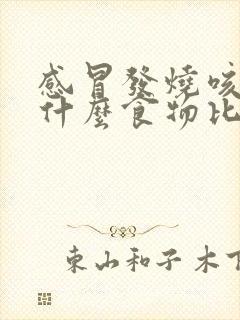 感冒發燒咳
什麼食物比
東山和子木下